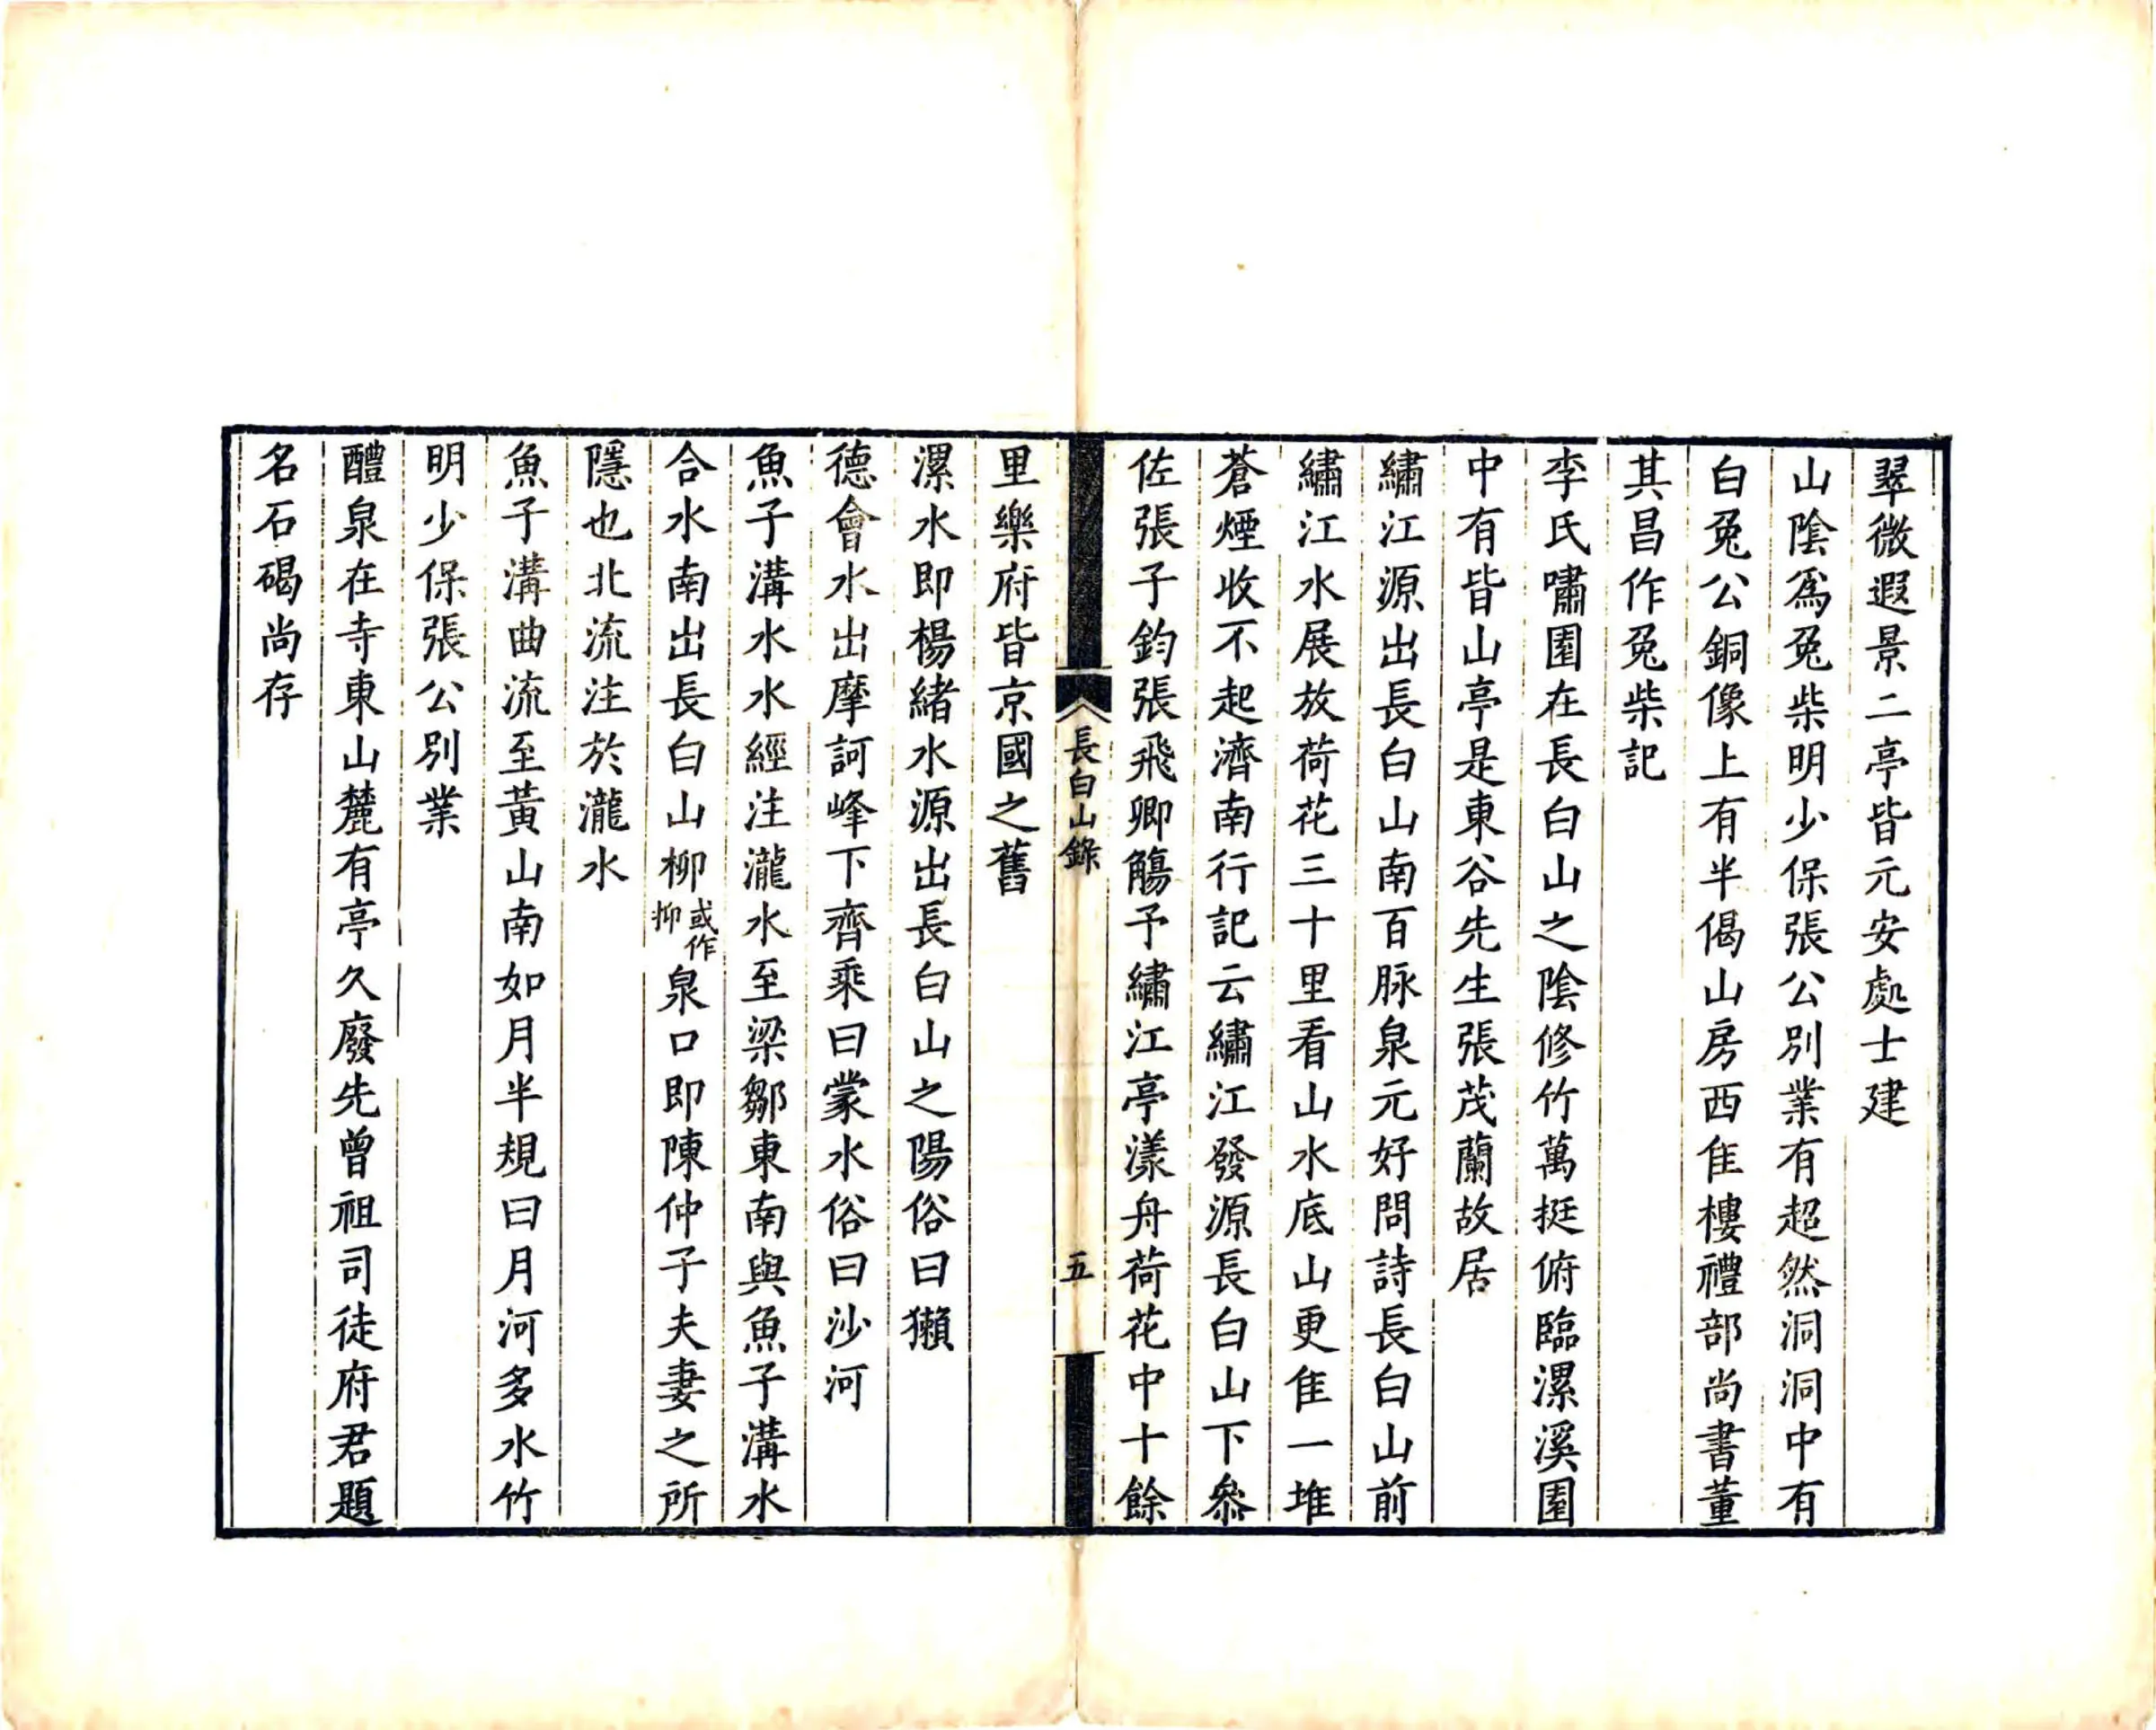 翠微遐景二亭皆元安處士建
山陰爲兔柴明少保張公別業有超然洞洞中有
白兔公銅像上有半偈山房西隹樓禮部尚書董
其昌作兔柴記
李氏嘯園在長白山之陰修竹萬挺俯臨漯溪園
中有皆山亭是東谷先生張茂蘭故居
繡江源出長白山南百脉泉元好問詩長白山前
繡江水展放荷花三十里看山水底山更隹一堆
蒼煙收不起濟南行記云繡江發源長白山下叅
佐張子鈞張飛卿觴予繡江亭漾舟荷花中十餘
長白山錄
五
里樂府皆京國之舊
漯水即楊緒水源出長白山之陽俗曰獺
德會水出摩訶峰下齊乘曰䝉水俗曰沙河
魚子溝水水經注瀧水至梁鄒東南與魚子溝水
合水南出長白山柳或作抑泉口即陳仲子夫妻之所
隱也北流注於瀧水
魚子溝曲流至黃山南如月半規曰月河多水竹
明少保張公別業
醴泉在寺東山麓有亭久廢先曾祖司徒府君題
名石碣尚存